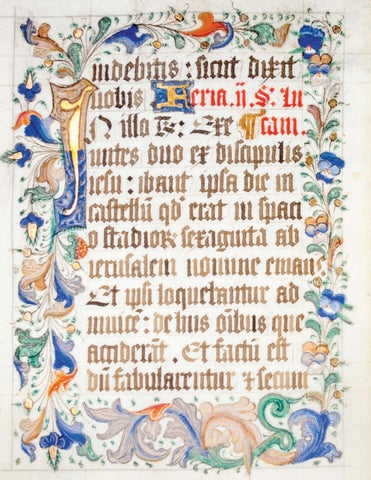 uidebitis : sicut dixit
uobis Feria .ij. S. Lu
IN illo t̄: Exe ¶ cam
untes duo ex discipulis
iesu : ibant ipsa die in
castellū qđ erat in spaci
o stadioꝝ sexaginta ab
ierusalem nomine emaus.
Et ipsi loquebantur ad
inuicē: de hiis oībus que
acciderāt. Et factū est
dū fabularentur ⁊ secum